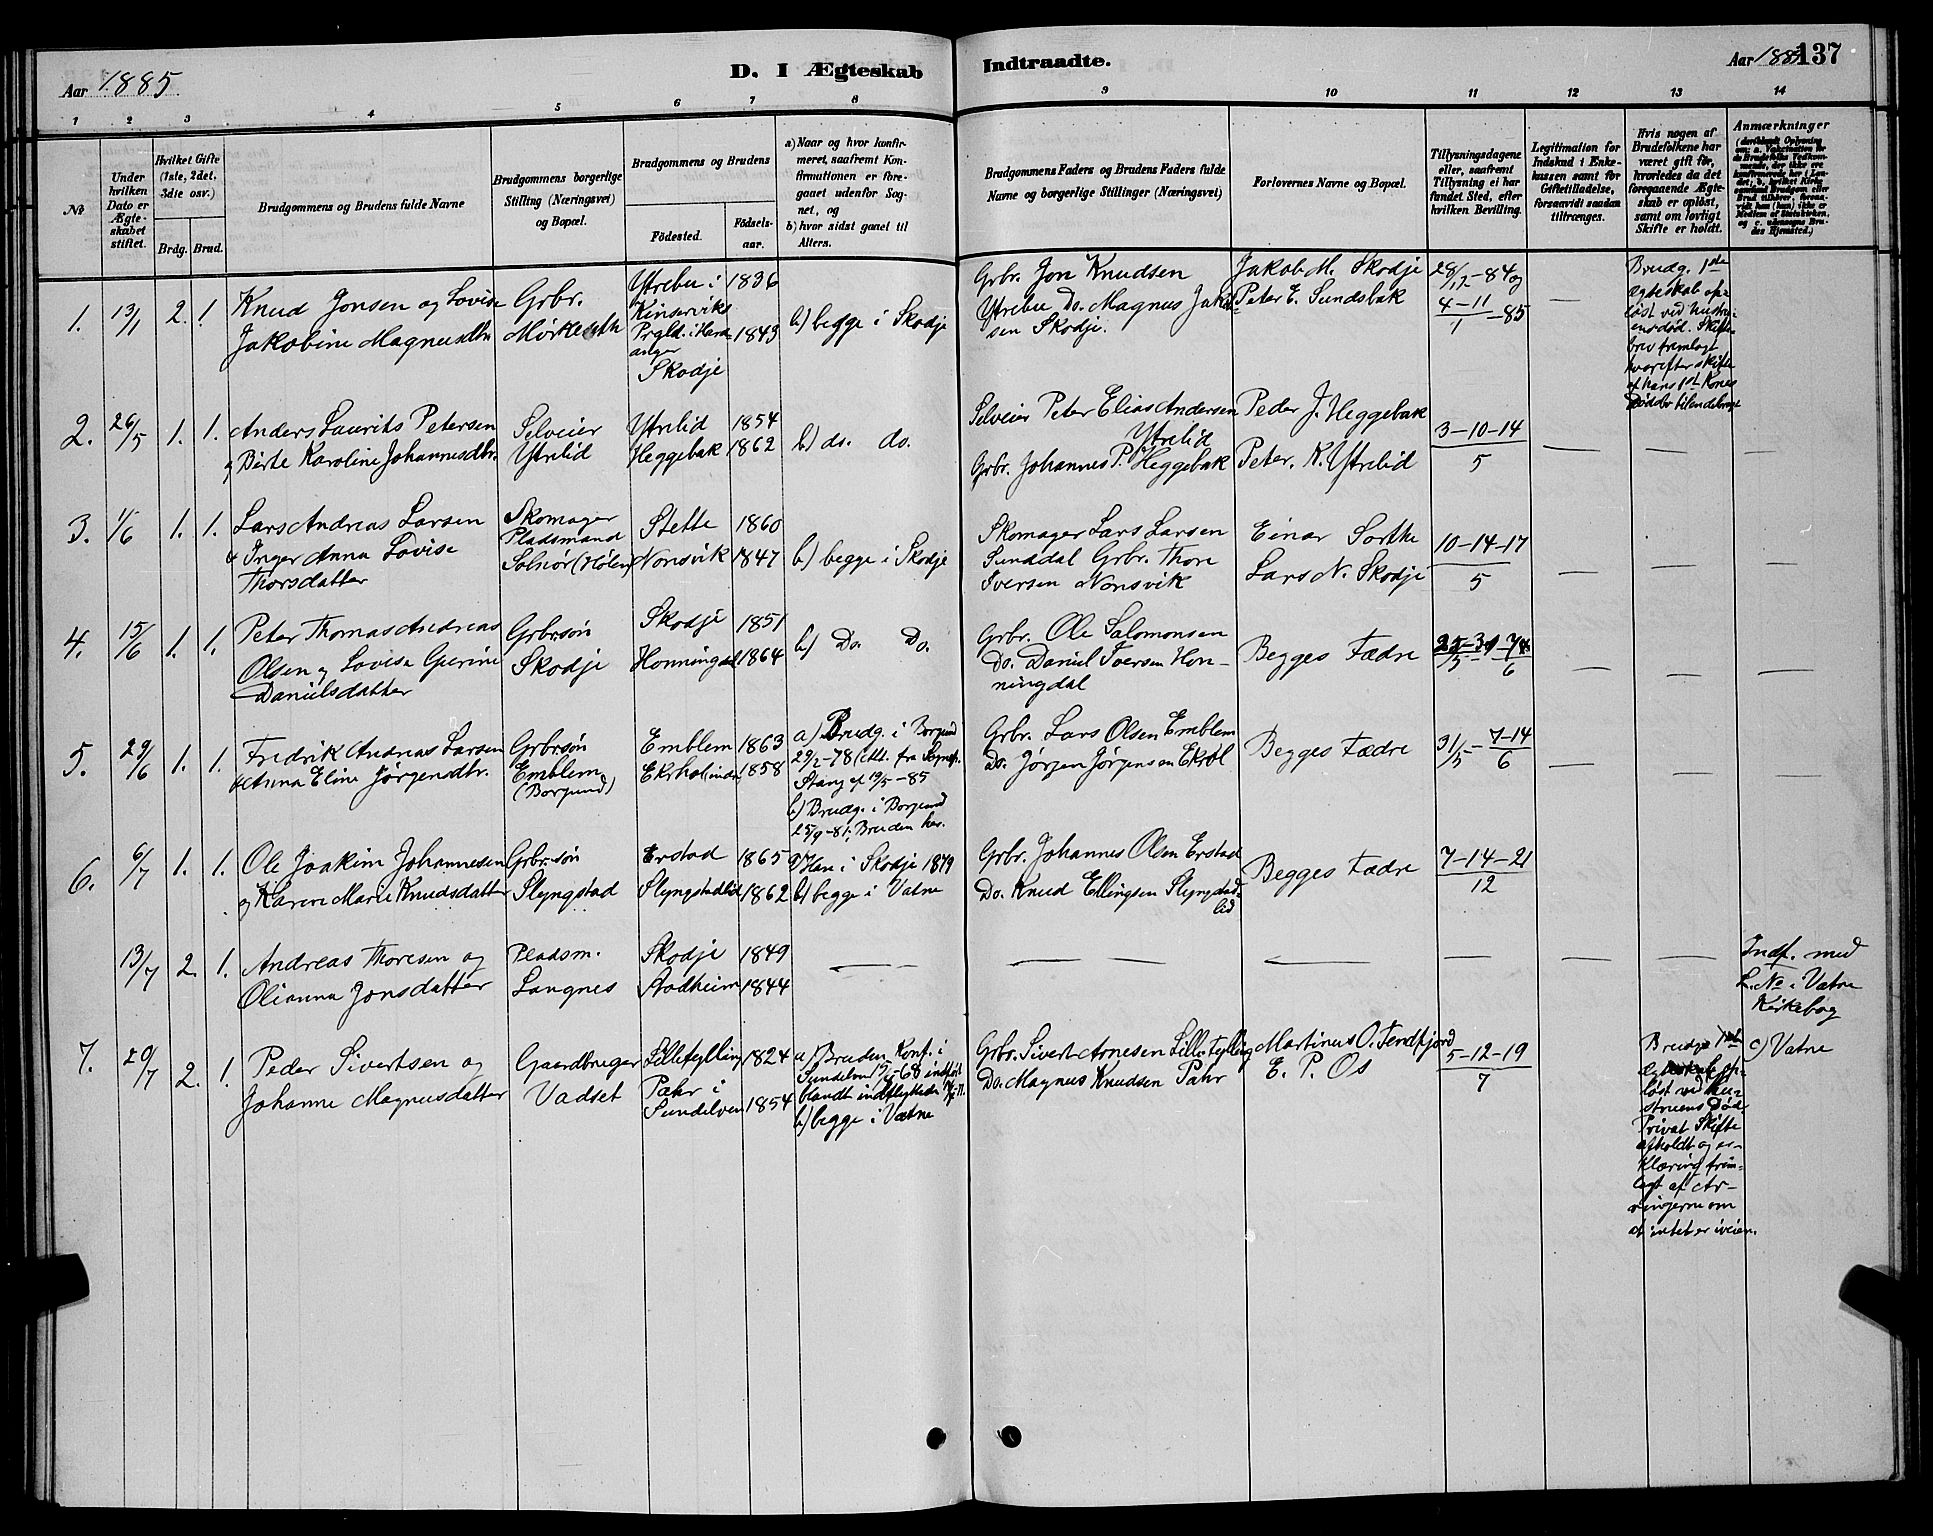 Aar 1885
D. I Ægteskab
Indtraadte.
Aar 1885
137
1 2 3 4 5 6 7 8 9 10 11 12 13 14
No
Under hvilken Dato er Ægteskabet stiftet.
Hvilket Gifte (1ste, 2det. 3die osv.)
Brdg. Brud.
Brudgommens og Brudens fulde Navne
Brudgommens borgerlige Stilling (Næringsvei) og Bopæl.
Brudgommens og Brudens
Fødested.
Fødselsaar.
a) Naar og hvor konfirmeret, saafremt Konfirmationen er foregaaet udenfor Sognet, og
b) hvor sidst gaaet til Alters.
Brudgommens Faders og Brudens Faders fulde Navne og borgerlige Stillinger (Næringsvei)
Forlovernes Navne og Bopæl.
Tillysningsdagene eller, saafremt Tillysning ei har fundet Sted, efter hvilken Bevilling.
Legitimation for Indskud i Enkekassen samt for Giftetilladelse, forsaavidt saadan tiltrænges.
Hvis nogen af Brudefolkene har været gift før, hvorledes da det foregaaende Ægteskab er opløst, samt om lovligt Skifte er holdt.
Anmærkninger
1. 13/1 2. 1.
Knud Jonsen og Lovise
Jakobine Magnusdtr.
Grbr.
Ytrebu i
Kinserviks
Prgld. i Hard
anger
Skodje
1836
1843
b) begge i Skodje
Grbr. Jon Knudsen
Ytrebu Do. Magnus Jakob
sen Skodje.
Jakob M. Skodje
Peter E. Sundsbak
28/12-84 og
4-11/1 -85
—
Brudg. 1ste
ægteskab op
løst ved hustru
ens død. Skifte
brev fremlagt
hvorefter skifte
af hans 1st Kones
2. 26/5 1. 1.
Anders Laurits Petersen
og Birte Karoline Johannesdtr.
Selveier
Ytrelid
Ytrelid
Heggebak
1854
1862
b) do. do.
Selveier Peter Elias Andersen
Ytrelid
Grbr. Johannes P. Heggebak
Peder J. Heggebak
Peter. K. Ytrelid
3-10-14
5
— — —
3. 1/6 1. 1.
Lars Andreas Larsen
& Inger Anna Lovise
Thorsdatter
Skomager
Pladsmand
Solnør (Holen)
Stette
Nonsvik
1860
1847
b) begge i Skodje
Skomager Lars Larsen
Sunddal Grbr. Thore
Iversen Nonsvik
Einar Sorthe
Lars N. Skodje
10-14-17
5
— — —
4. 15/6 1. 1.
Peter Thomas Andreas
Olsen og Lovise Gurine
Danielsdatter
Grbr.søn
Skodje
Skodje
Honningdal
1851
1864
b) Do. Do.
Grbr. Ole Salomonsen
Do. Daniel Iversen Hon-
ningdal
Begges Fædre
— — —
5. 29/6 1. 1.
Fredrik Andreas Larsen
& Anna Eline Jørgensdtr.
Grbr.søn
Emblem
(Borgund)
Emblem
1863
1858
a) Brudg. i Borgund
29/2-78 (
Stang af 19/5-85
b) Brudg. i Borgund
25/9-81; Bruden her.
Grbr. Lars Olsen Emblem
Do. Jørgen Jørgensen Ekrol
Begges Fædre
31/5 - 7-14/6
— — —
6. 6/7 1. 1.
Ole Joakim Johannesen
og Karen Marie Knudsdatter
Grbr.søn
Slyngstad
Erstad
Slyngstadlid
1865
1862
a) Han i Skodje 1879
b) begge i Vatne
Grbr. Johannes Olsen Erstad
Do. Knud Ellingsen Slyngstad-
lid
Begges Fædre
7-14-21
12
13/7 2. 1.
Andreas Thoresen og
Olianna Jonsdatter
Pladsm.
Langnes
Skodje
Stadheim
1849
1844
— — — — — — —
Indf. med
L. No i Vatne
Kirkebog
7. 20/7 2. 1.
Peder Sivertsen og
Johanne Magnusdatter
Gaardbruger
Vadset
Lilletylling
Pahr i
Sundelven
1824
1854
a) Bruden Konf. i
Sundelven -68 indført
blandt indflyttede
b) begge i Vatne
Grbr. Sivert Arnesen Lilletylling
Do. Magnus Knudsen Pahr
Martinus O. Tendfjord
E. P. Os
5-12-19
7
Brudgs 1ste
løst ved Hu-
struens Død
Privat Skifte
afholdt og er-
klæring frem-
lagt af Ar-
vingerne om
at intet er iveien.
c) Vatne